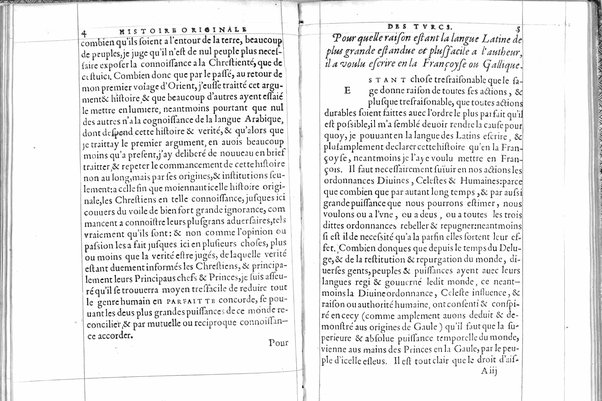 4 HISTOIRE ORIGINALE
combien qu'ils soient a l'entour de la terre, beaucoup
de peuples, je juge qu'il n'est de nul peuple plus neces-
saire exposer la connoissance a la Chrestienté, que de
cestuici. Combien donc que par le passé, au retour de
mon premier voiage d'Orient, j'eusse traitté cet argu-
ment & histoire, & que beaucoup d'autres ayent essaié
le mettre en lumiere, neantmoins pourtant que nul
des autres n'a la cognoissance de la langue Arabique,
dont despend cette histoire & verité, & qu'alors que
je traittay le premier argument, en avois beaucoup
moins qu'a present, j'ay deliberé de nouveau en brief
traitter, & repeter le commancement de cette histoire
non au long, mais par ses origines, & institutions seu-
lement: a celle fin que moiennant icelle histoire origi-
nale, les Chrestiens en telle connoissance, jusques ici
couuers du voile de bien fort grande ignorance, com
mancent a connoistre leurs plus grans aduersaires, tels
vraiement qu'ils sont; & non comme l'opinion ou
passion les a fait jusques ici en plusieurs choses, plus
ou moins que la verité estre jugés, de laquelle verité
estant duement informés les Chrestiens, & principa-
lement leurs Principaus chefs & Princes, je suis asseu-
ré qu'il se trouuerra moyen tresfacile de reduire tout
le genre humain en PARFAITTE concorde, se pou-
uant les deus plus grandes puissances de ce monde re-
concilier, & par mutuelle ou reciproque connoissan-
ce accorder.
Pour
DES TVRCS. 5
Pour quelle raison estant la langue Latine de
plus grande estandue et plus facile a l'autheur,
il a voulu escrire en la Françoyse ou Gallique.
ESTANT chose tresraisonable que le sa-
ge donne raison de toutes ses actions, &
plusque tresraisonable, que toutes actions
durables soient faittes auec l'ordre le plus parfait qu'il
est possible, il m'a semblé deuoir rendre la cause pour
quoy, je pouuant en la langue des Latins escrire, &
plus amplement declarer cette histoire qu'en la Fran-
çoyse, neantmoins je l'aye voulu mettre en Fran-
çois. Il faut necessairement suiuir en nos actions les
ordonnances Diuines, Celestes & Humaines: parce
que combien que par autant long temps, & par aussi
grande puissance que nous pourrons estimer, nous
voulons ou a l'vne, ou a deus, ou a toutes les trois
dittes ordonnances rebeller & repugner: neantmoins
si est il de necessité qu'a la parfin elles sortent leur ef-
fet. Combien donques que depuis le temps du Delu-
ge, & de la restitution & repurgation du monde, di-
uerses gents, peuples & puissances ayent auec leurs
langues regi & gouuerné ledit monde, ce neant-
moins la Diuine ordonnance, Celeste influence, &
raison ou authorité humaine, ont consenti & conspi-
ré en cecy (comme amplement auons deduit & de-
monstré aus origines de Gaule) qu'il faut que la su-
perieure & absolue puissance temporelle du monde,
vienne aus mains des Princes en la Gaule, par le peu-
ple d'icelle esleus. Il est tout clair que le droit d'ais-
A iij